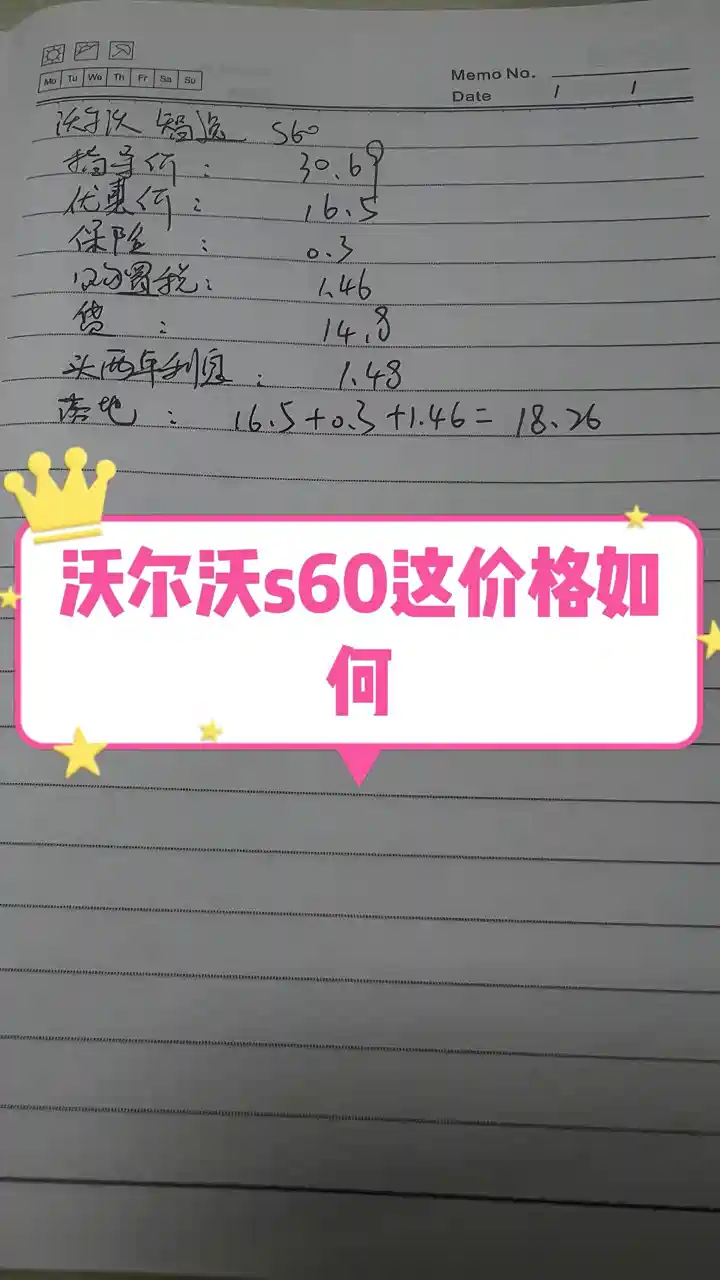 Mo Tu We Th Fr Sa Su
Memo No.
Date / /
沃尔沃 智远 S60
指导价: 30.69
优惠价: 16.5
保险: 0.3
购置税: 1.46
贷: 14.8
头两年利息: 1.48
落地: 16.5+0.3+1.46= 18.26
沃尔沃s60这价格如
何